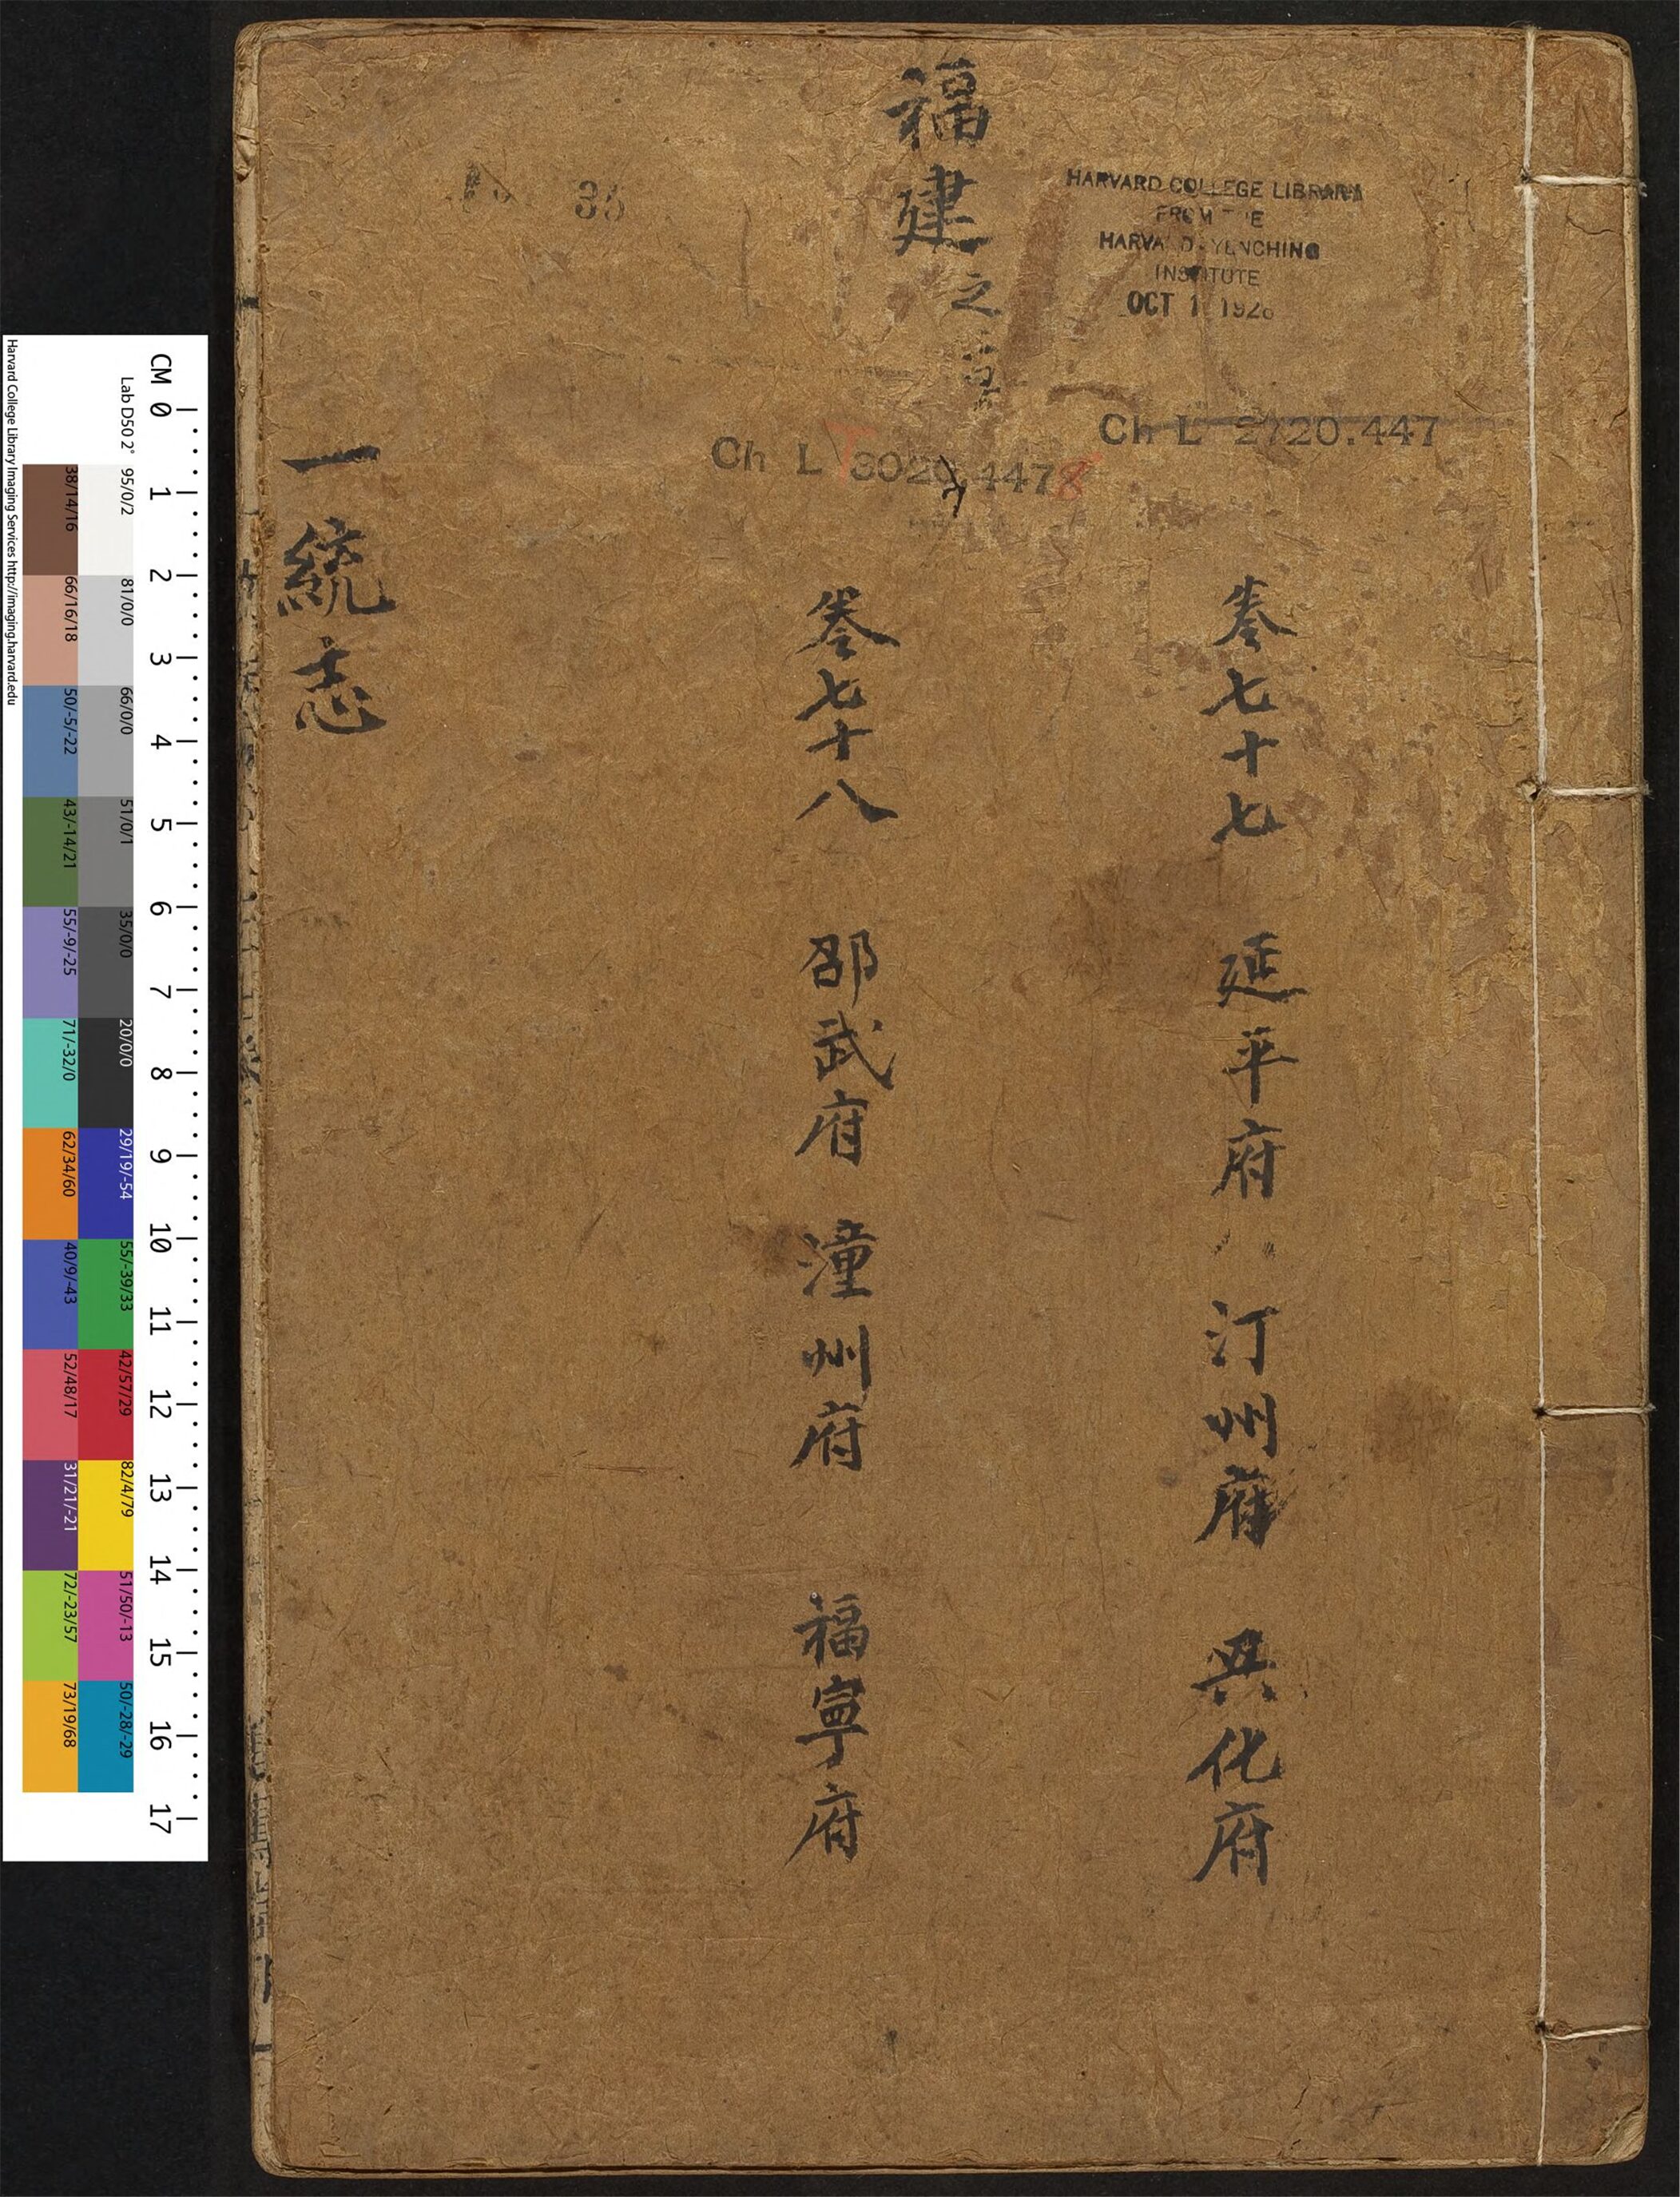 福建之
HARVARD COLLEGE LIBRARY
FROM THE
HARVARD-YENCHING
INSTITUTE
OCT 1 192
35
Ch L 2720.447
Ch L T 3020 4478
卷七十七 延平府 汀州府 興化府
卷七十八 邵武府 潼州府 福寧府
一統志
CM 0 1 2 3 4 5 6 7 8 9 10 11 12 13 14 15 16 17
Lab D50 2° 95/0/2 81/0/0 66/0/0 51/0/1 35/0/0 20/0/0 29/19/-54 55/-39/33 42/57/29 82/4/79 51/50/-13 50/-28/-29
38/14/16 66/16/18 50/-5/-22 43/-14/21 55/-9/-25 71/-32/0 62/34/60 40/9/-43 52/48/17 31/21/-21 72/-23/57 73/19/68
Harvard College Library Imaging Services http://imaging.harvard.edu